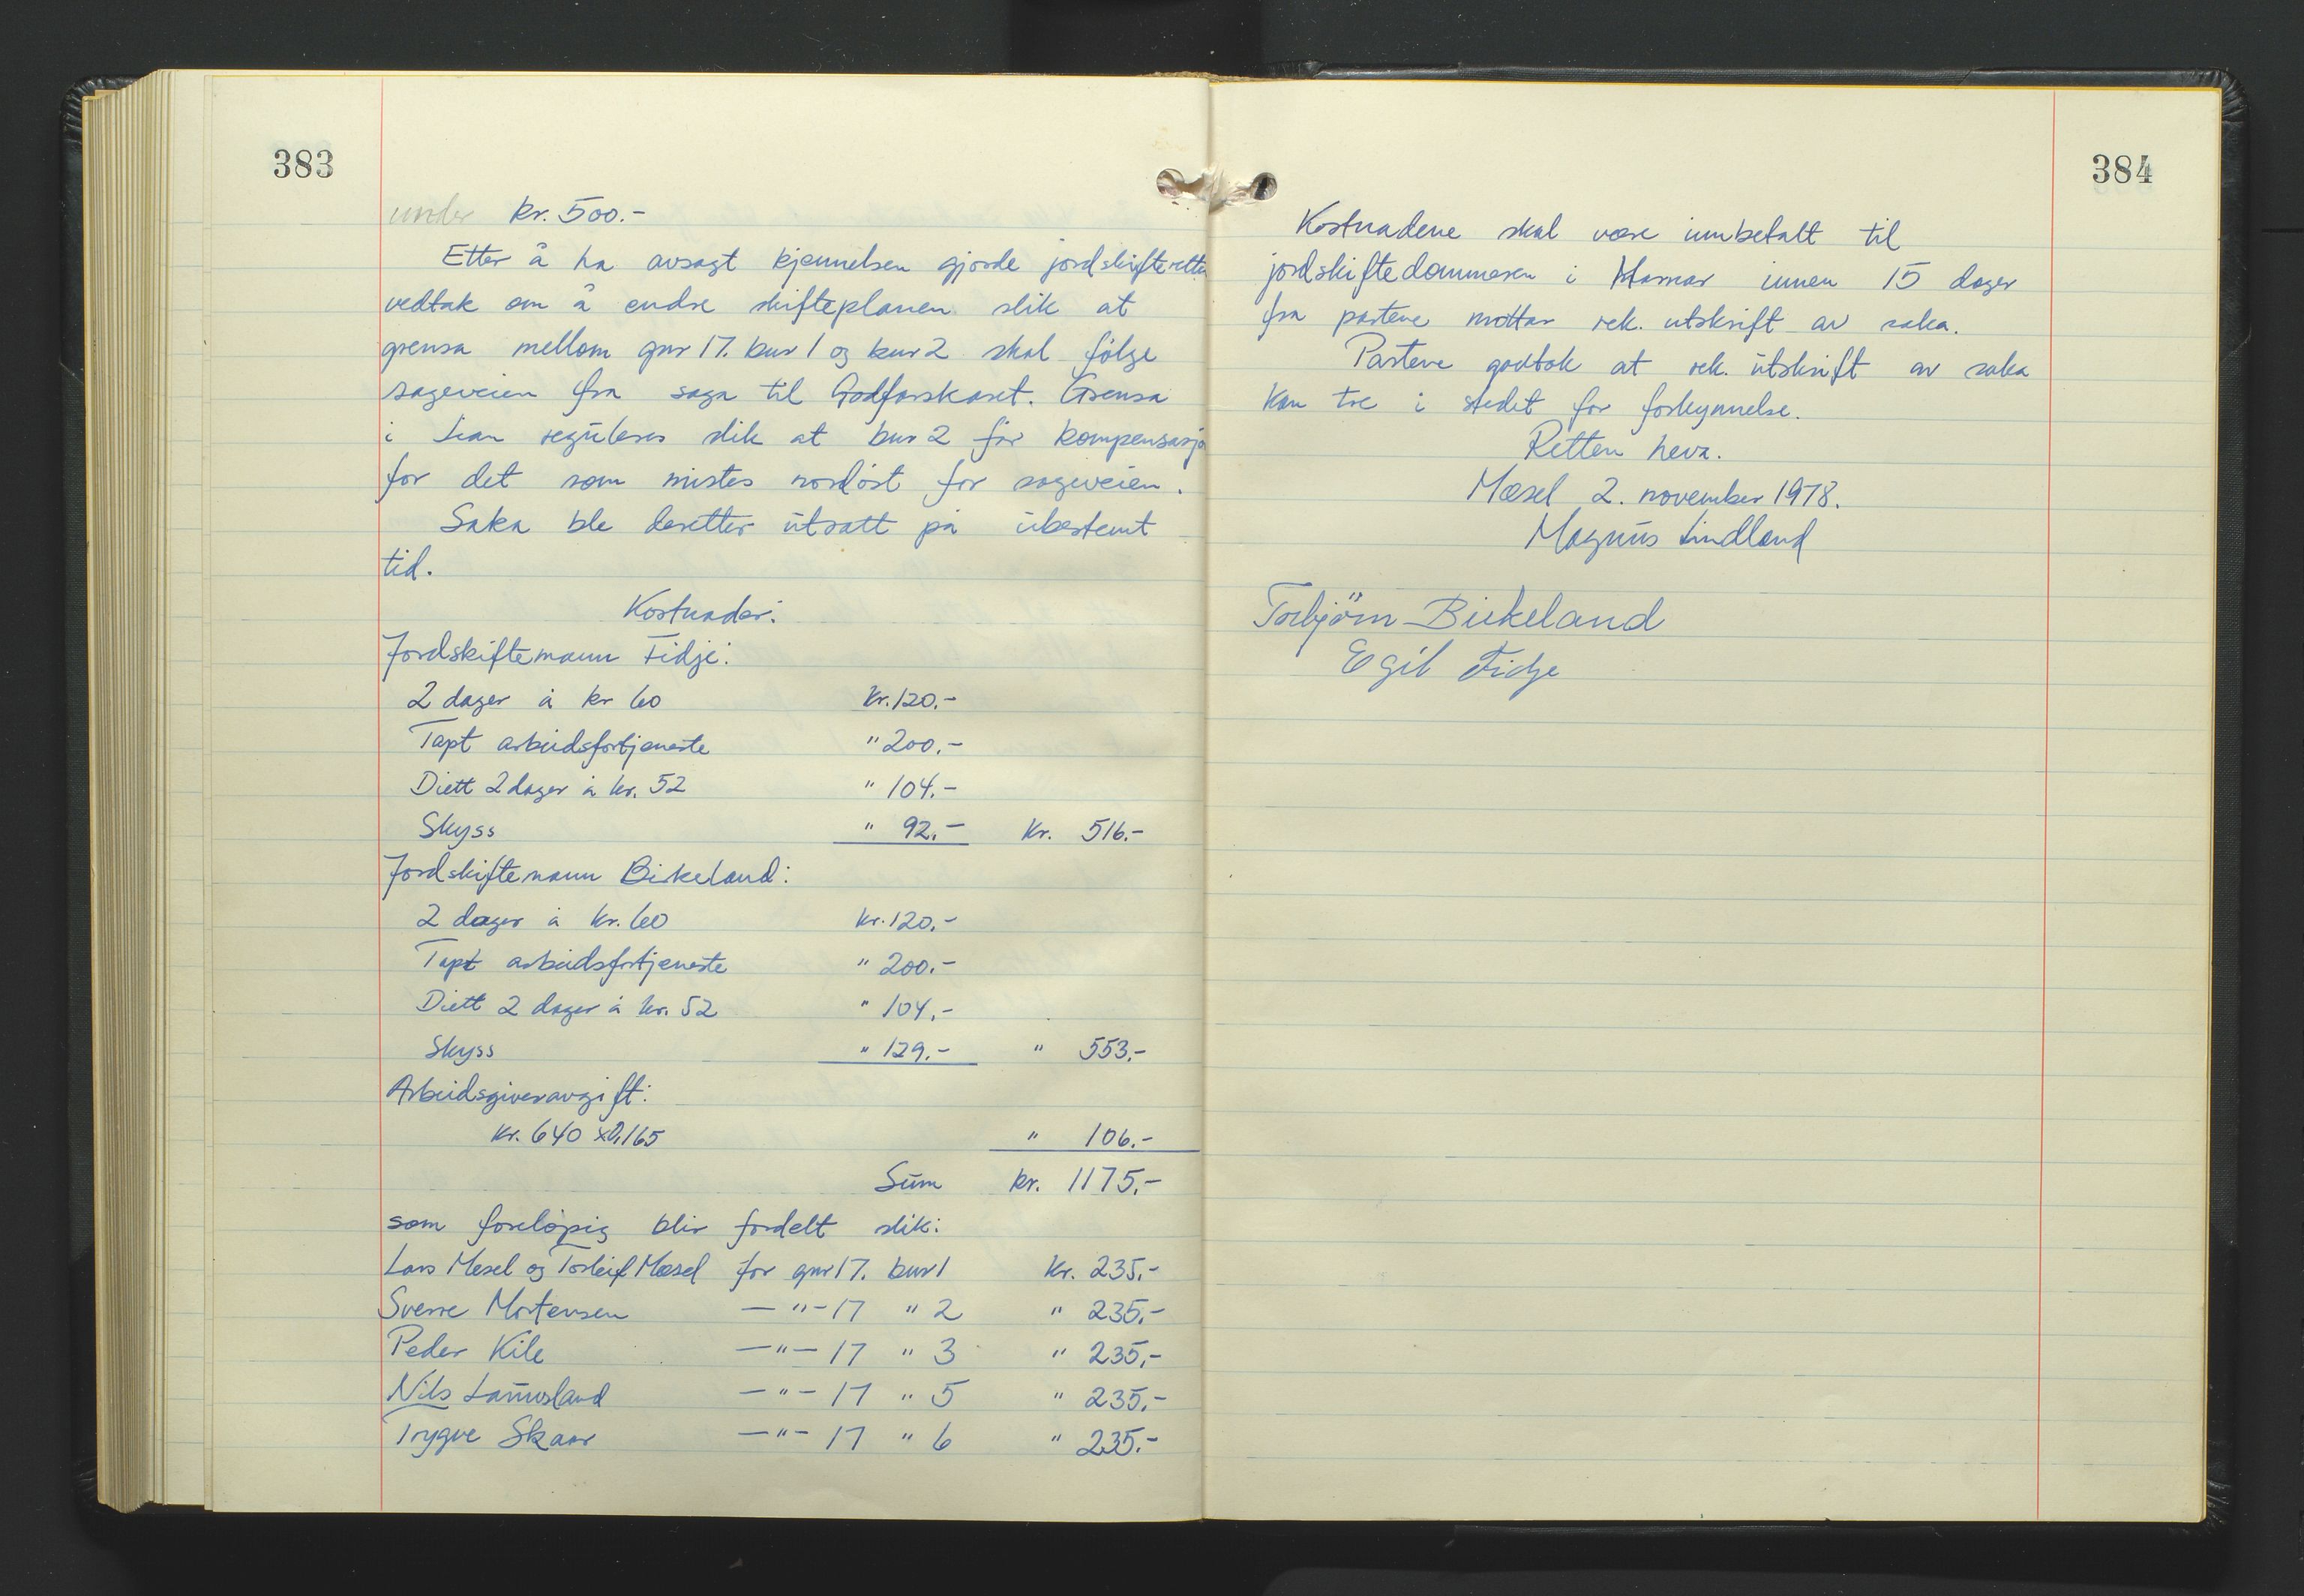 383
under kr. 500.-
Etter å ha avsagt kjennelsen gjorde jordskifterette
vedtak om å endre skifteplanen slik at
grensa mellom gnr 17. bnr 1 og bnr 2 skal følge
sageveien fra saga til Godfarskaret. Grensa
i Lian reguleres slik at bnr 2 får kompensasjo
for det som mistes nordøst for sageveien.
Saka ble deretter utsatt på ubestemt
tid.
Kostnader:
Jordskiftemann Fidje:
2 dager à kr 60 Kr. 120.-
Tapt arbeidsfortjeneste " 200.-
Diett 2 dager à kr. 52 " 104.-
Skyss " 92.- Kr. 516.-
Jordskiftemann Birkeland:
2 dager à kr. 60 Kr. 120.-
Tapt arbeidsfortjeneste " 200.-
Diett 2 dager à kr. 52 " 104.-
Skyss " 129.- " 553.-
Arbeidsgiveravgift:
Kr. 640 x 0,165 " 106.-
Sum kr. 1175.-
som foreløpig blir fordelt slik:
Lars Mesel og Torleif Mæsel for gnr 17. bnr 1 Kr. 235.-
Sverre Mortensen —"— 17 " 2 " 235.-
Peder Kile —"— 17 " 3 " 235.-
Nils Launesland —"— 17 " 5 " 235.-
Trygve Skaar —"— 17 " 6 " 235.-
384
Kostnadene skal være innbetalt til
jordskiftedommeren i Marnar innen 15 dager
fra partene mottar rek. utskrift av saka.
Partene godtok at rek. utskrift av saka
kan tre i stedet for forkynnelse.
Retten heva.
Mæsel 2. november 1978.
Magnus Lindland
Torbjörn Birkeland
Egil Fidje